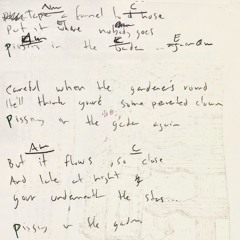 Am C
tape a funnel to a hose
Put it where nobody goes
Am E
Pissing in the garden
Careful when the gardener's round
He'll think you're some perverted clown
Pissing in the garden again
Am C
But it flows, so close
And late at night
your underneath the stars...
Pissing in the garden